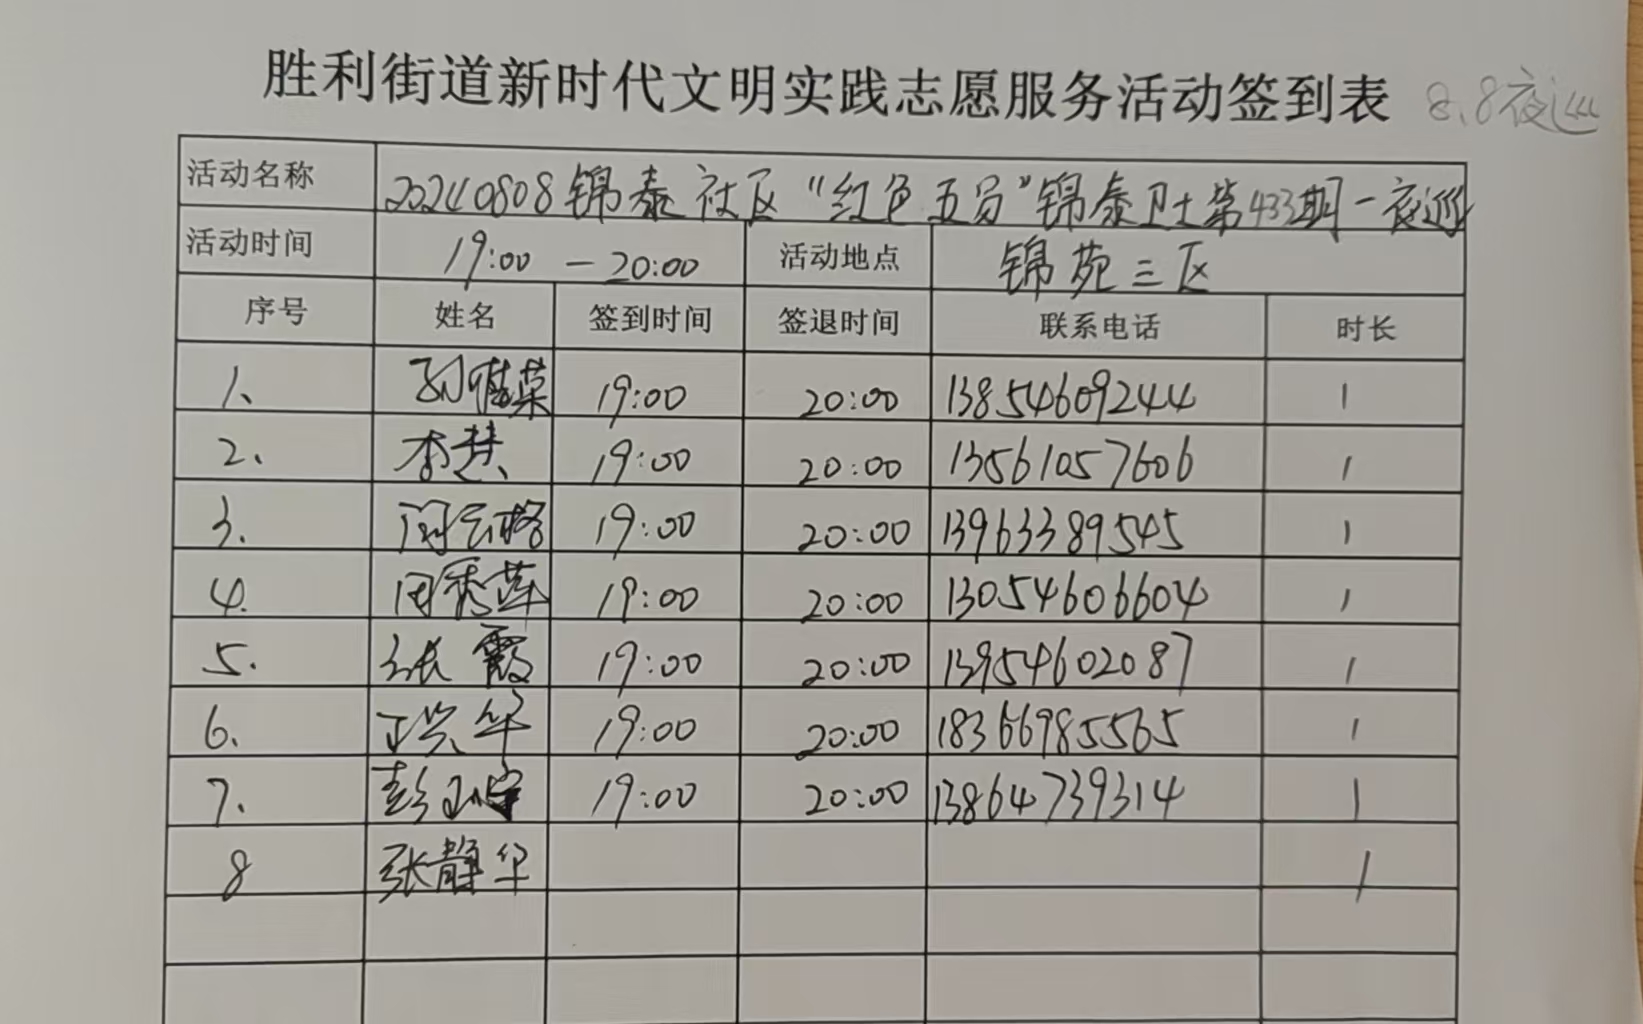 胜利街道新时代文明实践志愿服务活动签到表 8.8夜巡
活动名称 20240808锦泰社区“红色五员”锦泰卫士第433期-夜巡
活动时间 19:00-20:00 活动地点 锦苑三区
序号 姓名 签到时间 签退时间 联系电话 时长
1、 19:00 20:00 13854609244 1
2、 李慧 19:00 20:00 13561057606 1
3. 19:00 20:00 13963389545 1
4. 田秀莲 19:00 20:00 13054606604 1
5. 张霞 19:00 20:00 13954602087 1
6、 丁兴华 19:00 20:00 18366985565 1
7. 彭 19:00 20:00 13864739314 1
8 张静华 1